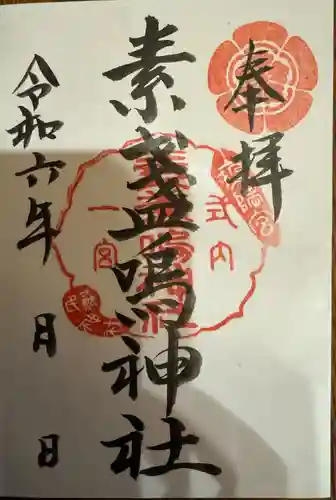 奉拝
素盞嗚神社
式内
一宮
令和六年 月 日